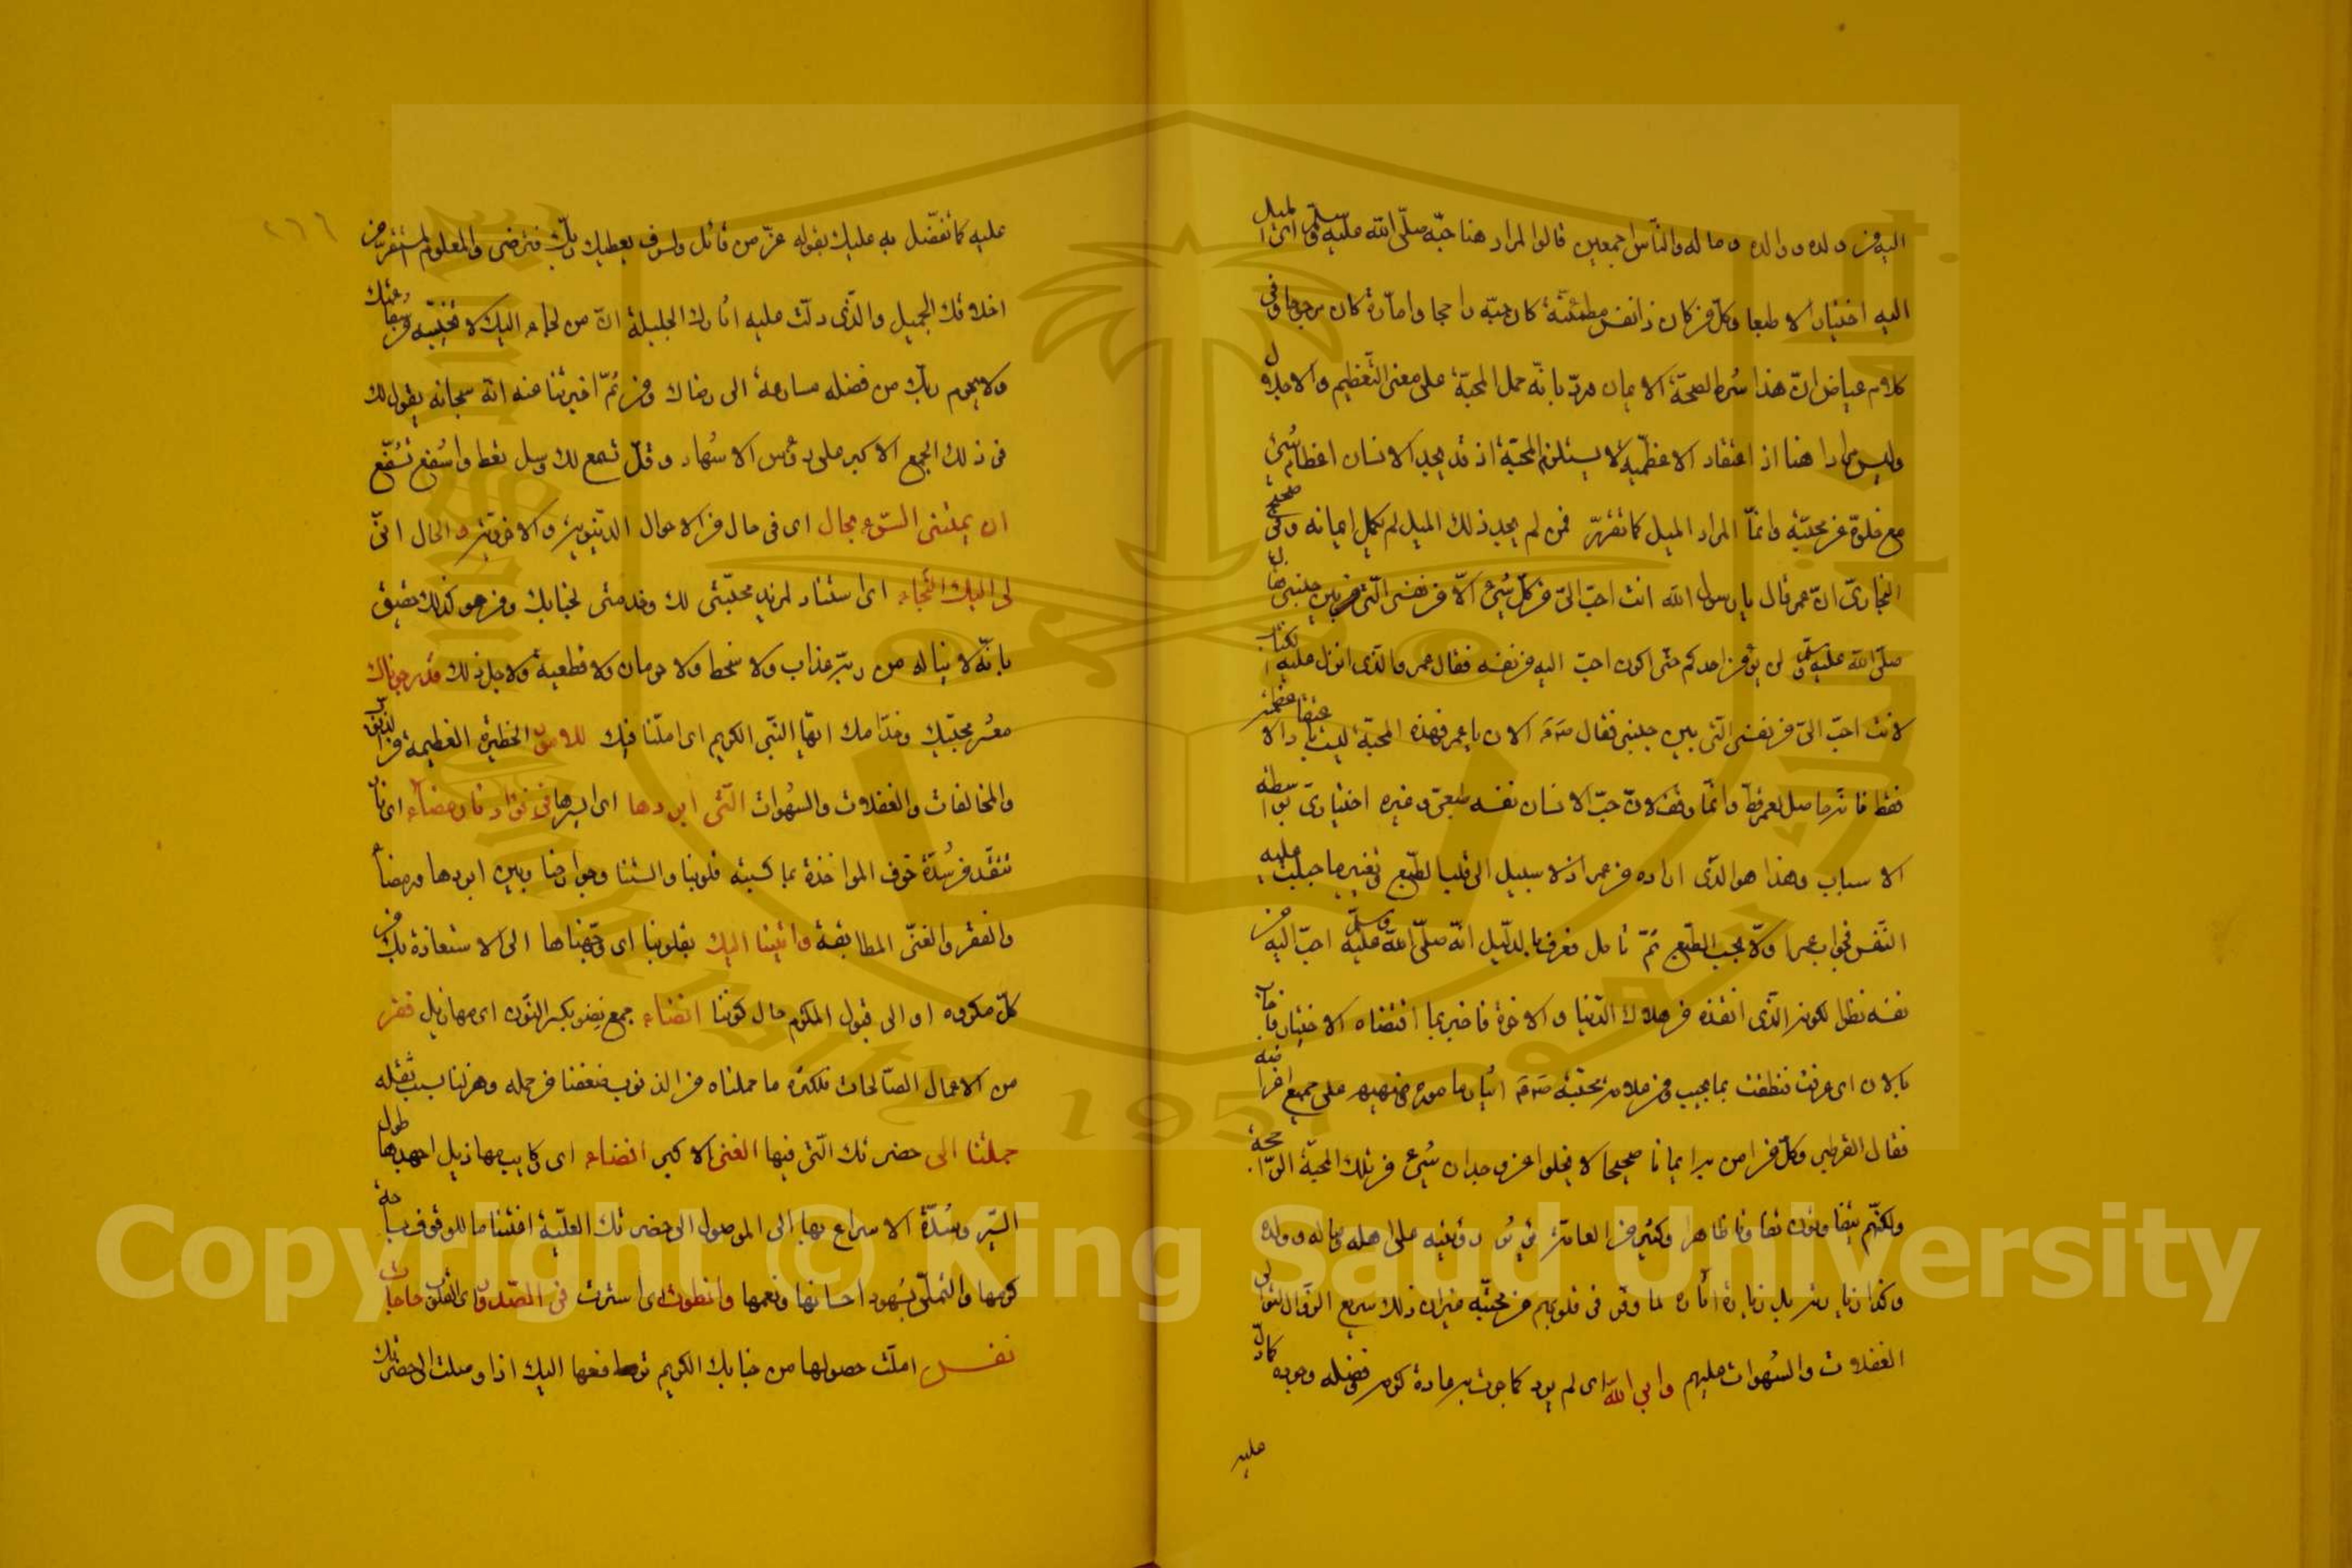 اليه من ولده ووالده وماله والناس اجمعين قالوا المراد هنا حبه صلى الله عليه وسلم اى الميل
اليه اختيارا لا طبعا وكل من كان ذا نفس مطمئنة كان حبه راجحا وامارة كان مرجوحا وفى
كلام عياض ان هذا شرط لصحة الايمان ورد بانه حمل المحبة على معنى التعظيم والاجلال
وليس مرادا هنا اذ اعتقاد الاعظمية لا يستلزم المحبة اذ قد يجد الانسان اعظام شئ
مع خلوه عن محبته وانما المراد الميل كما تقرر فمن لم يجد ذلك الميل لم يكمل ايمانه وفى صحيح
البخارى ان عمر قال يا رسول الله انت احب الى من كل شئ الا من نفسى التى بين جنبى فقال
صلى الله عليه وسلم لن يؤمن احدكم حتى اكون احب اليه من نفسه فقال عمر والذى انزل عليك الكتاب
لانت احب الى من نفسى التى بين جنبى فقال الان يا عمر فهذه المحبة ليست باعتقاد الاعظمية
فقط فانه حاصل لعمر قطعا وانما وقف لان حب الانسان نفسه طبعى وغيره اختيارى بواسطة
الاسباب وهذا هو الذى اراده من عمر اذ لا سبيل الى قلب الطبع وتغيير ما جبلت عليه
النفس فجواب عمر اولا بحسب الطبع ثم تامل فعرف بالدليل انه صلى الله عليه وسلم احب اليه من
نفسه نظرا لكونه الذى انقذه من هلاك الدنيا والاخرة فاخبر بما اقتضاه الاختيار فاجاب
بالان اى عرفت فنطقت بما يجب ومن علامة محبته ايثار ما على جميع اغراضه
فقال القرطبى وكل من امن به ايمانا صحيحا لا يخلو عن وجدان شئ من تلك المحبة الراجحة
ولكنهم يتفاوتون تفاوتا ظاهرا وكثير من العامة يؤثر رؤيته على اهله وماله وولده
وكذا زيارته بل زيارة اثاره لما وقر فى قلوبهم من محبته غير ان ذلك سريع الزوال لتوالى
الغفلات والشهوات عليهم وابى الله اى لم يرد كما جرت به عادة كرمه وفضله وجوده كان
عليه
عليه كما تفضل به عليك بقوله عز من قائل ولسوف يعطيك ربك فترضى والمعلوم المستقر من
اخلاقك الجميل والذى دلت عليه اثارك الجليلة ان من لجاء اليك لا تخيبه من شفاعتك
ولا يحرم ربك من فضله مسارعة الى رضاك ومن ثم اخبرتنا عنه انه سبحانه يقول لك
فى ذلك الجمع الاكبر على رؤس الاشهاد وقل تسمع لك وسل تعط واشفع تشفع
ان يمسنى السوء بحال اى فى حال من الاحوال الدنيوية والاخروية والحال انى
لى اليك التجاء اى استناد لمزيد محبتى لك وخدمتى لجنابك ومن هو كذلك حقيق
بانه لا يناله من ربه عذاب ولا سخط ولا حرمان ولا قطعية ولاجل ذلك قد رجوناك
معشر محبيك وخدامك ايها النبى الكريم اى املنا فيك للامور الخطيرة العظيمة من الذنوب
والمخالفات والغفلات والشهوات التى ابردها اى ايسرها فى فؤادنا رمضاء اى نار
تتقد من شدة خوف المؤاخذة بما كسبته قلوبنا والسنتنا وجوارحنا وبين ابردها ورمضاء
والفقر والغنى المطابقة واتينا اليك بقلوبنا اى وجهناها الى الاستعاذة بك من
كل مكروه او الى قبول المكرم حال كوننا انضاء جمع نضو بكسر النون اى مهازيل فقر
من الاعمال الصالحات فلكثرة ما حملناه من الذنوب ضعفنا من حمله وهزلنا بسبب ثقله
حملتنا الى حضرتك التى فيها الغنى الاكبر انضاء اى ركايب مهازيل اجهدها طول
السير وشدة الاسراع بها الى الوصول الى حضرتك العلية اغتناما للوقوف بساحة
كرمها والتملى بشهود احسانها ونعمها وانطوت اى استترت فى الصدور اى القلوب حاجات
نفس املت حصولها من جنابك الكريم فترفعها اليك اذا وصلت الى حضرتك
٢٦٦
Copyright © King Saud University
King Saud University
1957